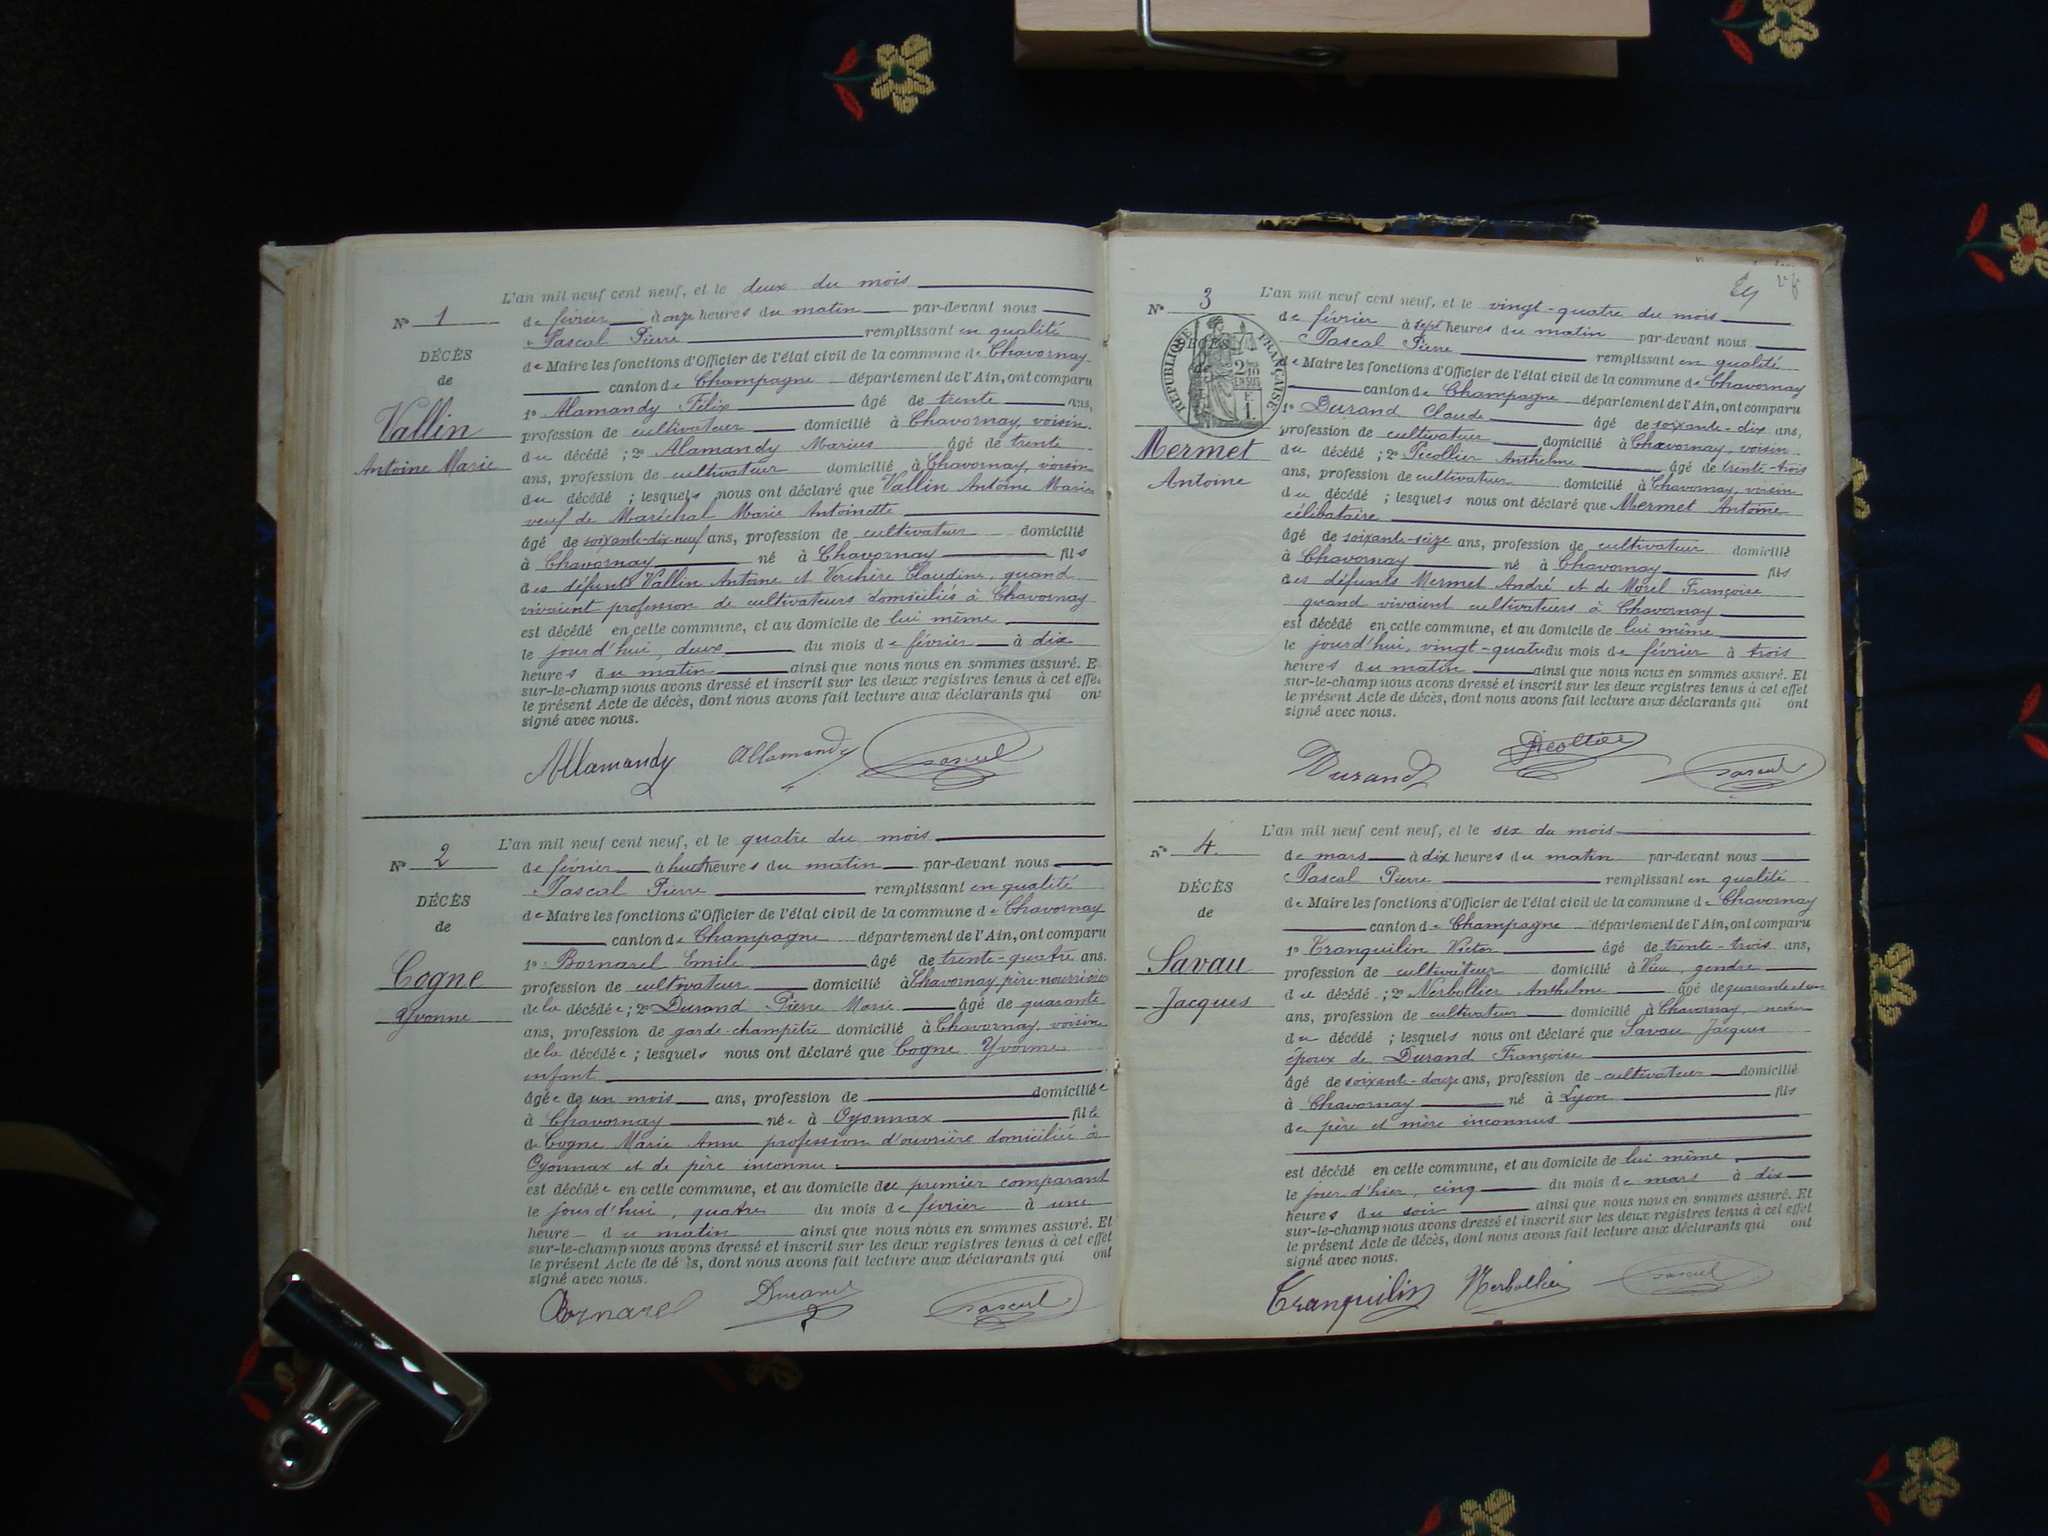 L'an mil neuf cent neuf, et le deux du mois
N° 1
de février à onze heures du matin par-devant nous
Pascal Pierre remplissant en qualité
DÉCÈS
de Maire les fonctions d'Officier de l'état civil de la commune de Chavornay
de
canton de Champagne département de l'Ain, ont comparu
Vallin
1° Alamandy Félix âgé de trente ans,
profession de cultivateur domicilié à Chavornay, voisin
Antoine Marie
du décédé ; 2° Alamandy Marius âgé de trente
ans, profession de cultivateur domicilié à Chavornay, voisin
du décédé ; lesquels nous ont déclaré que Vallin Antoine Marie
veuf de Maréchal Marie Antoinette
âgé de soixante-dix-neuf ans, profession de cultivateur domicilié
à Chavornay né à Chavornay fils
des défunts Vallin Antoine et Verchère Claudine, quand
vivaient profession de cultivateurs domiciliés à Chavornay
est décédé en cette commune, et au domicile de lui même
le jourd'hui, deux du mois de février à dix
heures du matin ainsi que nous nous en sommes assuré. E
sur-le-champ nous avons dressé et inscrit sur les deux registres tenus à cet effe
le présent Acte de décès, dont nous avons fait lecture aux déclarants qui ont
signé avec nous.
Allamandy Allamandy Pascal
L'an mil neuf cent neuf, et le quatre du mois
N° 2
de février à huit heures du matin par-devant nous
Pascal Pierre remplissant en qualité
DÉCÈS
de Maire les fonctions d'Officier de l'état civil de la commune de Chavornay
de
canton de Champagne département de l'Ain, ont comparu
1° Bornarel Emile âgé de trente-quatre ans.
Cogne
profession de cultivateur domicilié à Chavornay, père-nourricier
Yvonne
de la décédée ; 2° Durand Pierre Marie âgé de quarante
ans, profession de garde-champêtre domicilié à Chavornay, voisin
de la décédée ; lesquels nous ont déclaré que Cogne Yvonne
enfant
âgée de un mois ans, profession de domiciliée
à Chavornay née à Oyonnax fille
de Cogne Marie Anne profession d'ouvrière domiciliée à
Oyonnax et de père inconnu
est décédée en cette commune, et au domicile du premier comparant
le jourd'hui, quatre du mois de février à une
heure du matin ainsi que nous nous en sommes assuré. Et
sur-le-champ nous avons dressé et inscrit sur les deux registres tenus à cet effet
le présent Acte de décès, dont nous avons fait lecture aux déclarants qui ont
signé avec nous.
Bornarel Durand Pascal
L'an mil neuf cent neuf, et le vingt-quatre du mois
N° 3
de février à sept heures du matin par-devant nous
Pascal Pierre remplissant en qualité
DÉCÈS
RÉPUBLIQUE FRANÇAISE
de Maire les fonctions d'Officier de l'état civil de la commune de Chavornay
de
canton de Champagne département de l'Ain, ont comparu
1° Durand Claude âgé de soixante-dix ans,
profession de cultivateur domicilié à Chavornay, voisin
Mermet
du décédé ; 2° Picollier Anthelme âgé de trente-trois
Antoine
ans, profession de cultivateur domicilié à Chavornay, voisin
du décédé ; lesquels nous ont déclaré que Mermet Antoine
célibataire
âgé de soixante-seize ans, profession de cultivateur domicilié
à Chavornay né à Chavornay fils
des défunts Mermet André et de Morel Françoise
quand vivaient cultivateurs à Chavornay
est décédé en cette commune, et au domicile de lui même
le jourd'hui, vingt-quatre du mois de février à trois
heures du matin ainsi que nous nous en sommes assuré. Et
sur-le-champ nous avons dressé et inscrit sur les deux registres tenus à cet effet
le présent Acte de décès, dont nous avons fait lecture aux déclarants qui ont
signé avec nous.
Durand Picollier Pascal
L'an mil neuf cent neuf, et le six du mois
N° 4
de mars à dix heures du matin par-devant nous
Pascal Pierre remplissant en qualité
DÉCÈS
de Maire les fonctions d'Officier de l'état civil de la commune de Chavornay
de
canton de Champagne département de l'Ain, ont comparu
1° Tranquilin Victor âgé de trente-trois ans,
Savau
profession de cultivateur domicilié à Vieu, gendre
Jacques
du décédé ; 2° Nerbollier Anthelme âgé de quarante et un
ans, profession de cultivateur domicilié à Chavornay,
du décédé ; lesquels nous ont déclaré que Savau Jacques
époux de Durand Françoise
âgé de soixante-douze ans, profession de cultivateur domicilié
à Chavornay né à Lyon fils
de père et mère inconnus
est décédé en cette commune, et au domicile de lui même
le jour d'hier, cinq du mois de mars à dix
heures du soir ainsi que nous nous en sommes assuré. Et
sur-le-champ nous avons dressé et inscrit sur les deux registres tenus à cet effet
le présent Acte de décès, dont nous avons fait lecture aux déclarants qui ont
signé avec nous.
Tranquilin Nerbollier Pascal